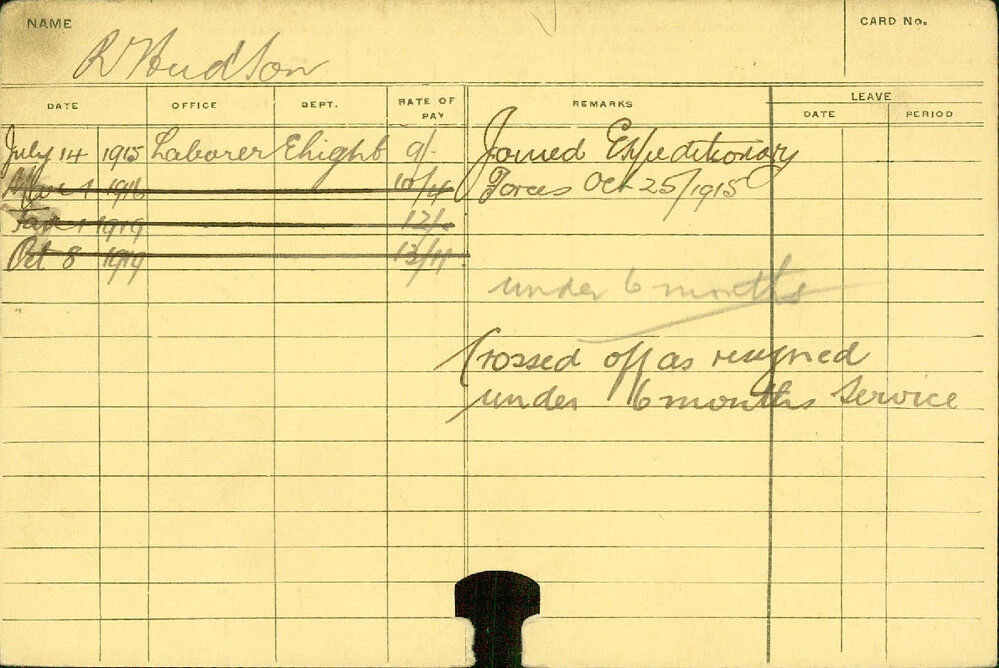 NAME
CARD No.
R Hudson
DATE OFFICE DEPT. RATE OF PAY REMARKS LEAVE
DATE PERIOD
July 14 1915 Laborer Elight 9/- Joined Expeditionary
1 1916 10/4 Forces Oct 25/1915
Jan 1 1919 12/-
Oct 8 1919 13/11
under 6 months
Crossed off as resigned
under 6 months service